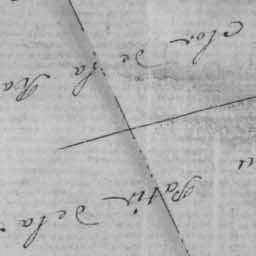 Patis de la
Clos de la Ha